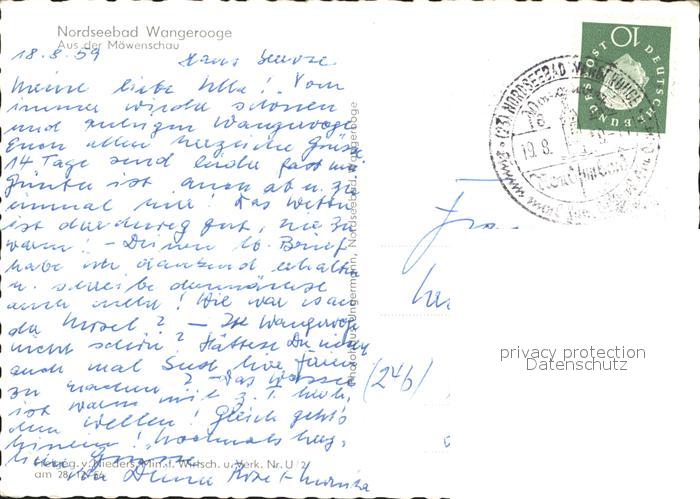 Nordseebad Wangerooge
Aus der Möwenschau
18.8.59 Haus Seerose
Meine liebe Ulla! Vom
immer wieder schönen
und ruhigen Wangerooge
Euch allen herzliche Grüße
14 Tage sind leider fast
Günter ist auch ab u. zu
einmal hier! Das Wetter
ist durchweg gut, nie zu
warm! – Deinen lb. Brief
habe ich dankend erhalten
u. schreibe demnächst
auch mehr! Wie war es an
der Mosel? – Ist Wangerooge
nicht schön? Hättest Du nicht
auch mal Lust, hier Ferien
zu machen? – Das Wasser
ist warm mit z. T. hohen
Wellen! Gleich geht's
hinein! Nochmals herz-
liche Grüsse
Deine
Herieg. v. Nieders. Min. f. Wirtsch. u. Verk. Nr. U/2
am 28. 12. 54
Photohaus Jungermann, Nordseebad Wangerooge
(23) NORDSEEBAD WANGEROOGE
19.8.
10
DEUTSCHE BUNDESPOST
(24b)
privacy protection
Datenschutz